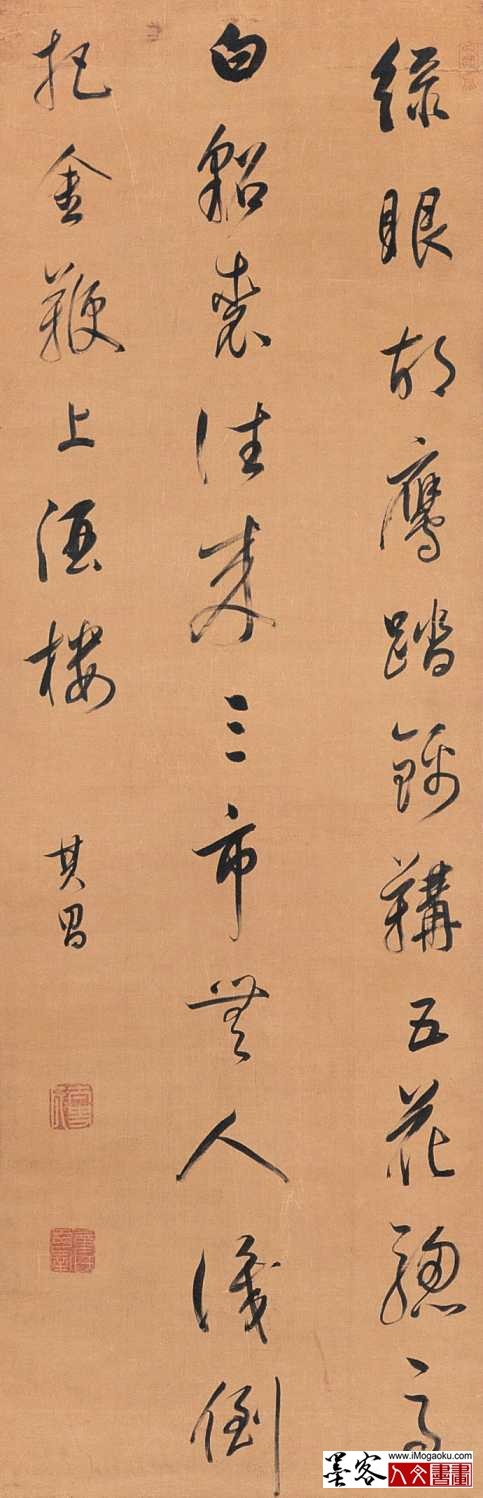 绿眼胡鹰踏锦鞲五花骢马
白貂裘往来三市无人识倒
把金鞭上酒楼
其昌
墨客
www.iMogaoku.com
人文書畫